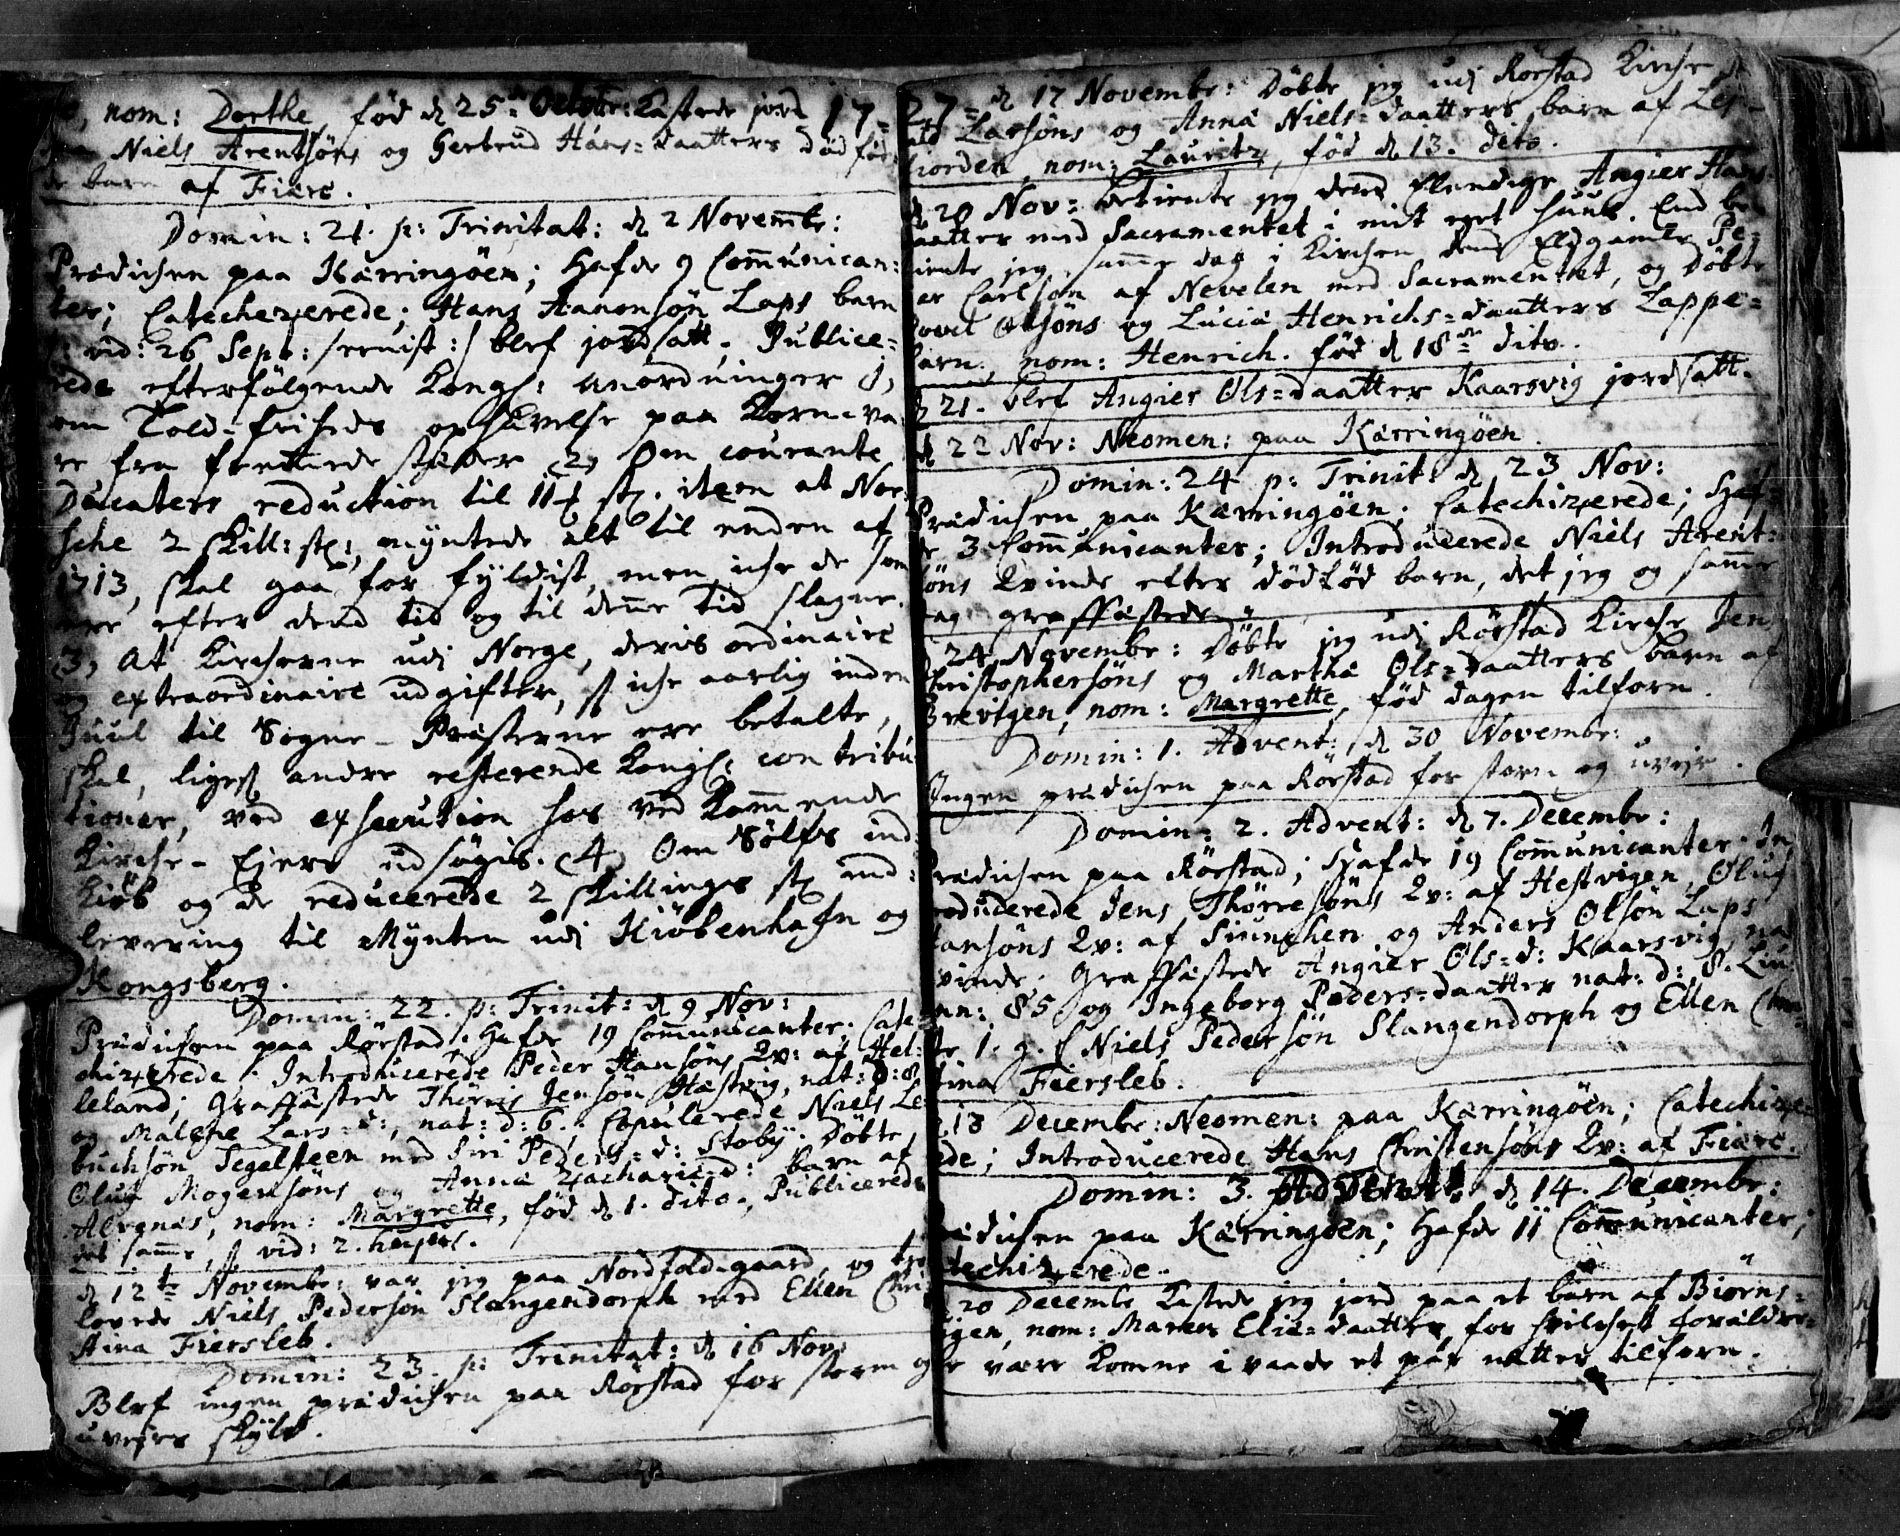 nom: Dorthe, fød d 25de Octobr: Kastede jord 17-
Niels Arentsøns og Gertrud Hans=daatters dødfød-
de barn af Fiære.
Domin: 21. p: Trinitat: d 2 Novembr:
Prædichen paa Kærringøen; Hafde 9 Communican-
ter; Catechizerede; Hans Aanonsøn Laps barn
vid: 26 Sept: blef jordsatt. Publice-
rede efterfølgende Kongl: anordninger 1,
om Told-friheds ophævelse paa Korn-va-
re fra fremmede stæder 2, Om courante
Ducaters reduction til 11 ß. item at Nor-
sche 2 skill: st:, myntede alt til enden af
1713, skal gaa for fyldist, men iche de som
ere efter dend tid og til denne tid slagne.
3, At Kircherne udj Norge, deris ordinaire
og extraordinaire udgifter, iche aarlig inden
Juul til Sogne-Præsterne ere betalte,
skal, ligesom andre resterende Kongl: contribu-
tioner, ved exsecution hos vedkommende
Kirche-Ejere udsøgis. (4) Om Sølfs ind-
kiøb og de reducerede 2 skillinger st: ind-
levering til Mynten udj Kiøbenhafn og
Kongsberg.
Domin: 22. p: Trinit: d 9 Nov:
Prædichen paa Rørstad. Hafde 19 Communicanter. Cate-
chizerede. Introducerede Peder Hansøns Qv: af Hel-
leland; Graffæstede Thørris Jensøn Hæstvig, nat: d: 8
og Malene Lars=d:, nat: d: 6. Copulerede Niels Le-
buchsøn Segelsteen med Siri Peders=d: Støby. Døbte
Oluf Mogensøns og Anna Zachariæ=d: barn af
Alvenæs, nom: Margrette, fød d 1. dito, Publicerede
det samme, vid: 2. hujus.
d 12te Novembr: var jeg paa Nordfoldgaard, og tro-
lovede Niels Pedersøn Slangendorph med Ellen Chri-
stina Fiersleb.
Domin: 23. p: Trinitat: d 16 Nov:
Blef ingen prædichen paa Rørstad for storm og
uvejrs skyld.
27- d 17 Novembr: Døbte jeg udj Rørstad Kirche
Larsøns og Anna Niels=daatters barn af Les-
fiorden, nom: Lauritz, fød d 13. dito.
d 20 Nov: betiente jeg dend Elendige Angier Hans-
daatter med Sacramentet i mit eget huus. End be-
tiente jeg samme dag i Kirchen dend Eldgamle Pe-
der Carlsøn af Nevelen med Sacramentet, og døbte
Povel Olsøns og Lucia Henrichs=daatters Lappe-
barn, nom: Henrich. fød d 18de dito.
d 21. blef Angier Ols=daatter Kaarsvig jordsatt.
d 22 Nov: Neomen: paa Kærringøen.
Domin: 24 p: Trinit d 23 Nov:
Prædichen paa Kærringøen. Catechizerede; Haf-
de 3 Communicanter; Introducerede Niels Arent-
søns Qvinde efter dødfød barn, det jeg og samme
dag graffæstede.
d 24 Novembr: Døbte jeg udj Rørstad Kirche Jens
Christophersøns og Martha Ols=daatters barn af
Brevigen, nom: Margrette, fød dagen tilforn.
Domin: 1. Advent: d 30 Novembr:
Ingen prædichen paa Rørstad for storm og uvejr.
Domin: 2. Advent: d 7. Decembr:
Prædichen paa Rørstad; Hafde 19 Communicanter. In-
troducerede Jens Thørresøns Qv: af Hestvigen, Oluf
Hansøns Qv: af og Anders Olsøn Laps
qvinde. Graffæstede Angier Ols=d: Kaarsvig na:
ann: 85 og Ingeborg Peders=daatter nat: d: 8.
1. g. Niels Pedersøn Slangendorph og Ellen Chri-
stina Fiersleb.
d 13 Decembr: Neomen: paa Kærringøen; Catechize-
rede; Introducerede Hans Christensøns Qv: af Fiære.
Domin: 3. Advent: d 14. Decembr:
Prædichen paa Kærringøen; Hafde 11 Communicanter;
Catechizerede.
d 20 Decembr Kastede jeg jord paa et barn af Biørns-
vigen, nom: Maren Eliæ=daatter, for hvilchet forældre-
ne vare komne i vaade et par netter tilforn.